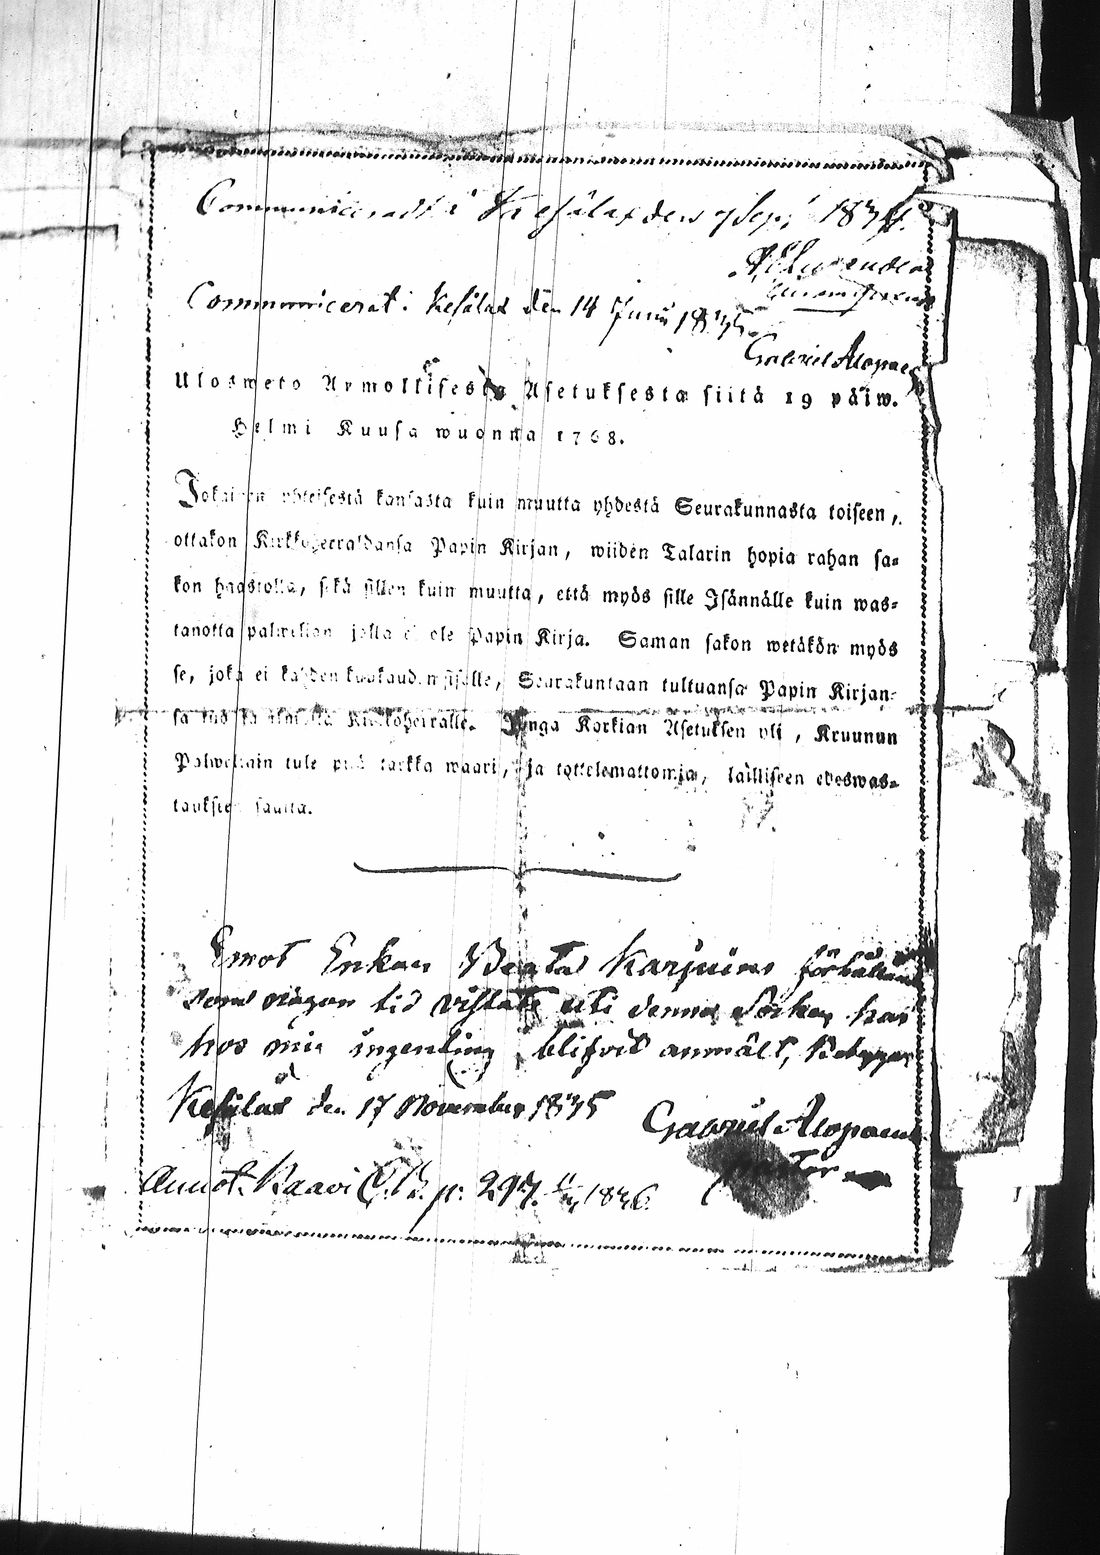 Communiceradt i Kesälax den 7 Sept 1834.
Communicerat i Kesälax den 14 Junii 1835
Gabriel Alopaeus
Ulosweto Armollisesta Asetuksesta siitä 19 päiw.
Helmi Kuusa wuonna 1768.
Jokainen yhteisestä kansasta kuin muutta yhdestä Seurakunnasta toiseen,
ottakon Kirkkoherraldansa Papin Kirjan, wiiden Talarin hopia rahan sa-
kon haastolla, sekä sillen kuin muutta, että myös sille Isännälle kuin was-
tanotta palwelian jolla ei ole Papin Kirja. Saman sakon wetäkön myös
se, joka ei kahden kuukauden sisälle, Seurakuntaan tultuansa Papin Kirjan-
sa Kirkkoherralle. Jonga Korkian Asetuksen yli, Kruunun
Palweliain tule pitä tarkka waari, ja tottelemattomia, lailliseen edeswas-
taukseen saatta.
Emot Enkan Beata Karjuinn förhållande
som någon tid vistats uti denna Socken har
hos mig ingenting blifvit anmält, Betygar
Kesälax den 17 November 1835 Gabriel Alopaeus
pastor
Annot. Kaavi C.B. p. 297. 1836.